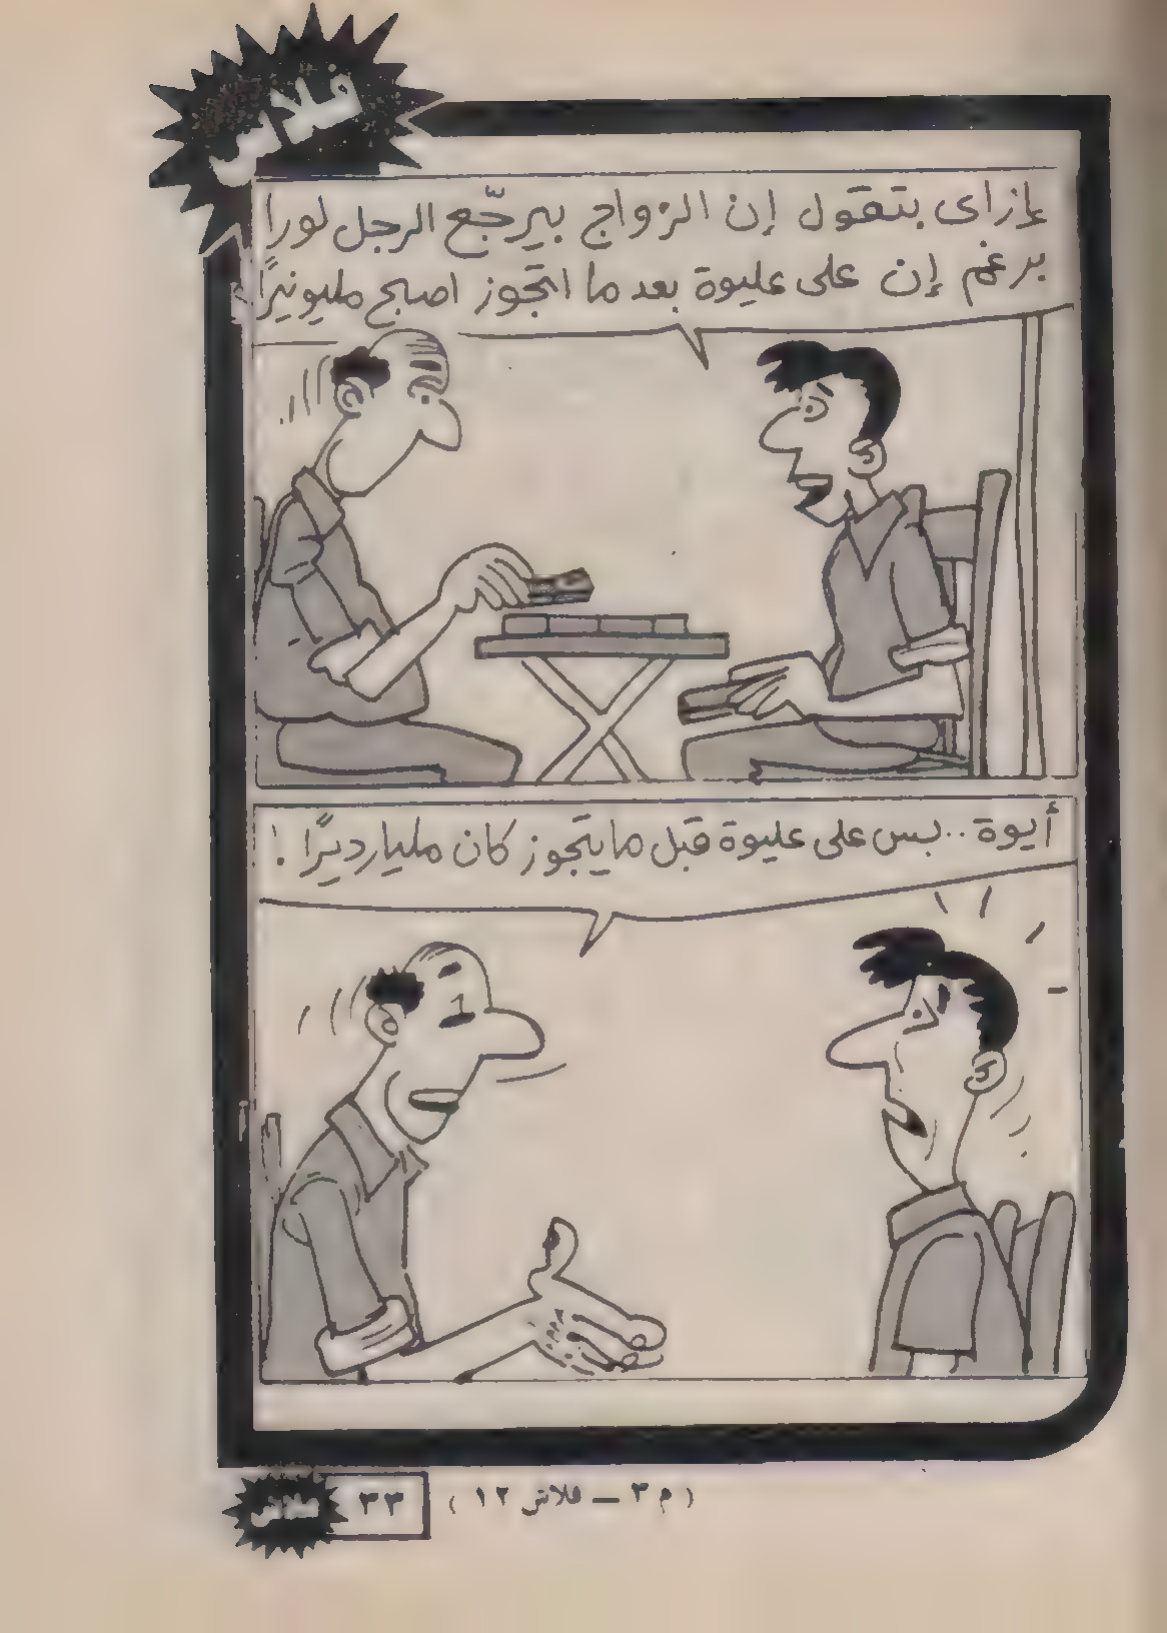 فلاش
إزاى بتقول إن الزواج بيرجّع الرجل لورا
برغم إن على عليوة بعد ما اتجوز اصبح مليونيرًا
أيوة.. بس على عليوة قبل مايتجوز كان مليارديرًا !
( م ٣ — فلاش ١٢ )
٣٣
فلاش